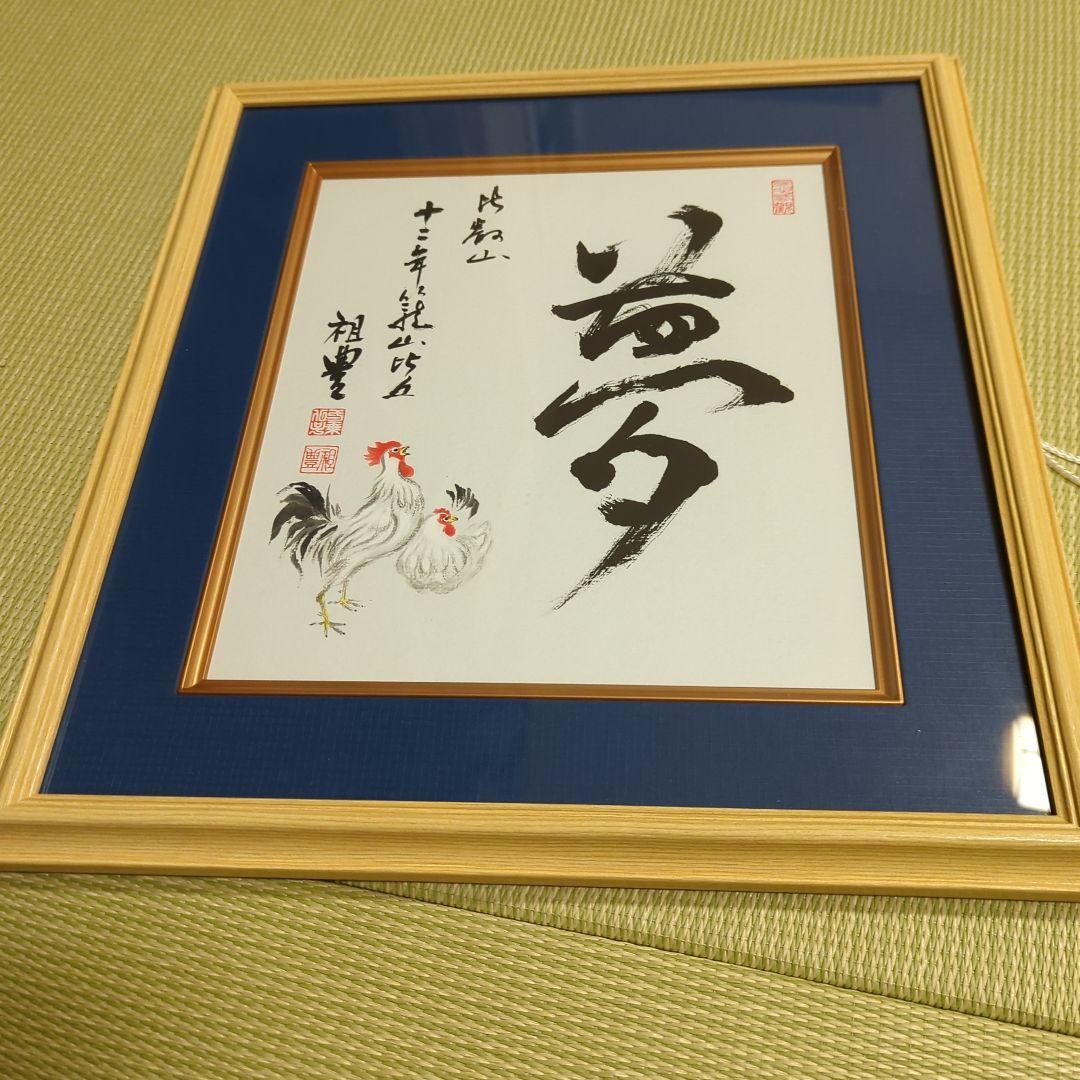 夢
比叡山
十二年籠山比丘
祖豊